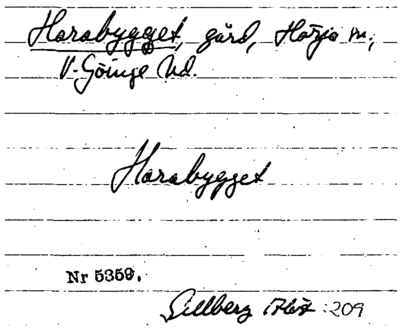 Harabygget, gård, Hörja sn;
V. Göinge hd.
Harabygget
Nr 5359.
Gillberg 209